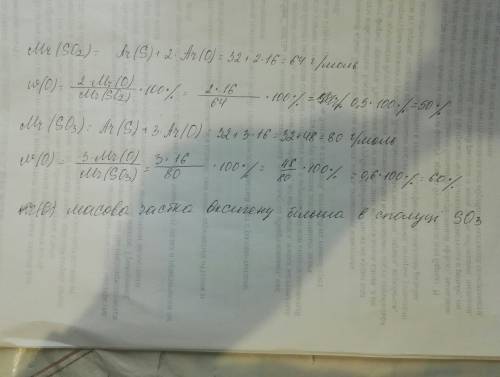 Mr(SO₂) = Ar(S) + 2·Ar(O) = 32 + 2·16 = 64 г/моль
w(O) = 2·Mr(O) / Mr(SO₂) · 100% = 2·16 / 64 · 100% = 0,5·100% = 50%
Mr(SO₃) = Ar(S) + 3·Ar(O) = 32 + 3·16 = 32 + 48 = 80 г/моль
w(O) = 3·Mr(O) / Mr(SO₃) = 3·16 / 80 · 100% = 48 / 80 · 100% = 0,6·100% = 60%
масова частка оксигену більша в сполуці SO₃